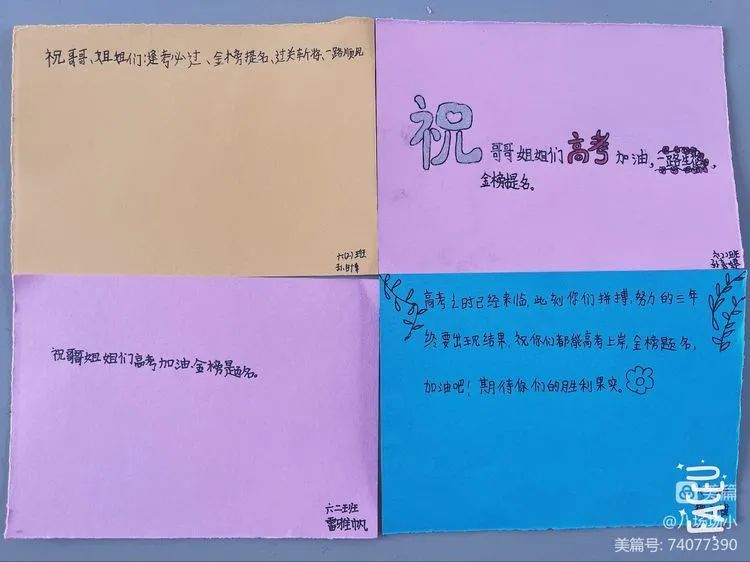 祝哥哥、姐姐们:逢考必过、金榜提名、过关斩将、一路顺风
六(2)班
祝哥哥姐姐们高考加油,一路生花,
金榜提名。
六(2)班
祝哥哥姐姐们高考加油.金榜题名。
六二班
雷雅帆
高考之时已经来临,此刻你们拼搏,努力的三年
终要出现结果,祝你们都能高考上岸,金榜题名,
加油吧!期待你们的胜利果实。
美篇
@八场场小
美篇号: 74077390